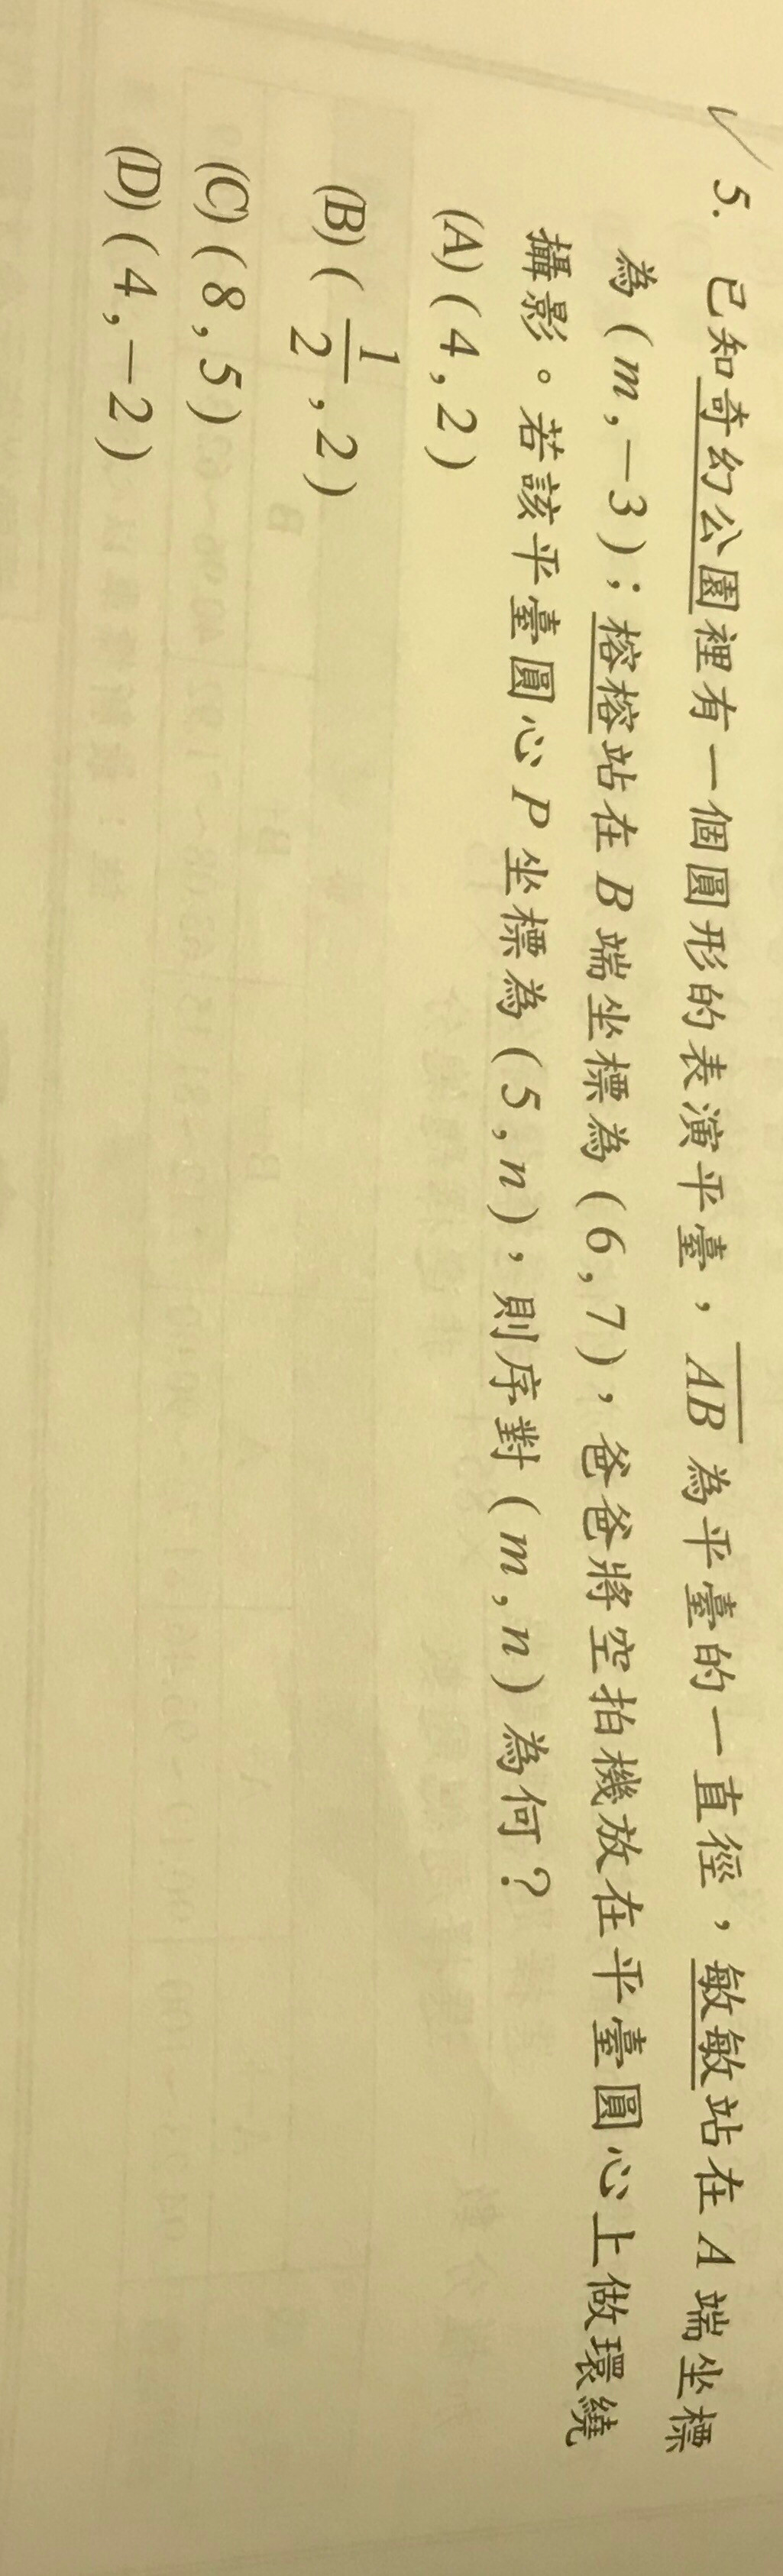 ✓ 5. 已知奇幻公園裡有一個圓形的表演平臺，AB 為平臺的一直徑，敏敏站在 A 端坐標
為(m,−3)；榕榕站在 B 端坐標為(6,7)，爸爸將空拍機放在平臺圓心上做環繞
攝影。若該平臺圓心 P 坐標為(5,n)，則序對(m,n)為何？
(A)(4,2)
(B)(1/2,2)
(C)(8,5)
(D)(4,−2)